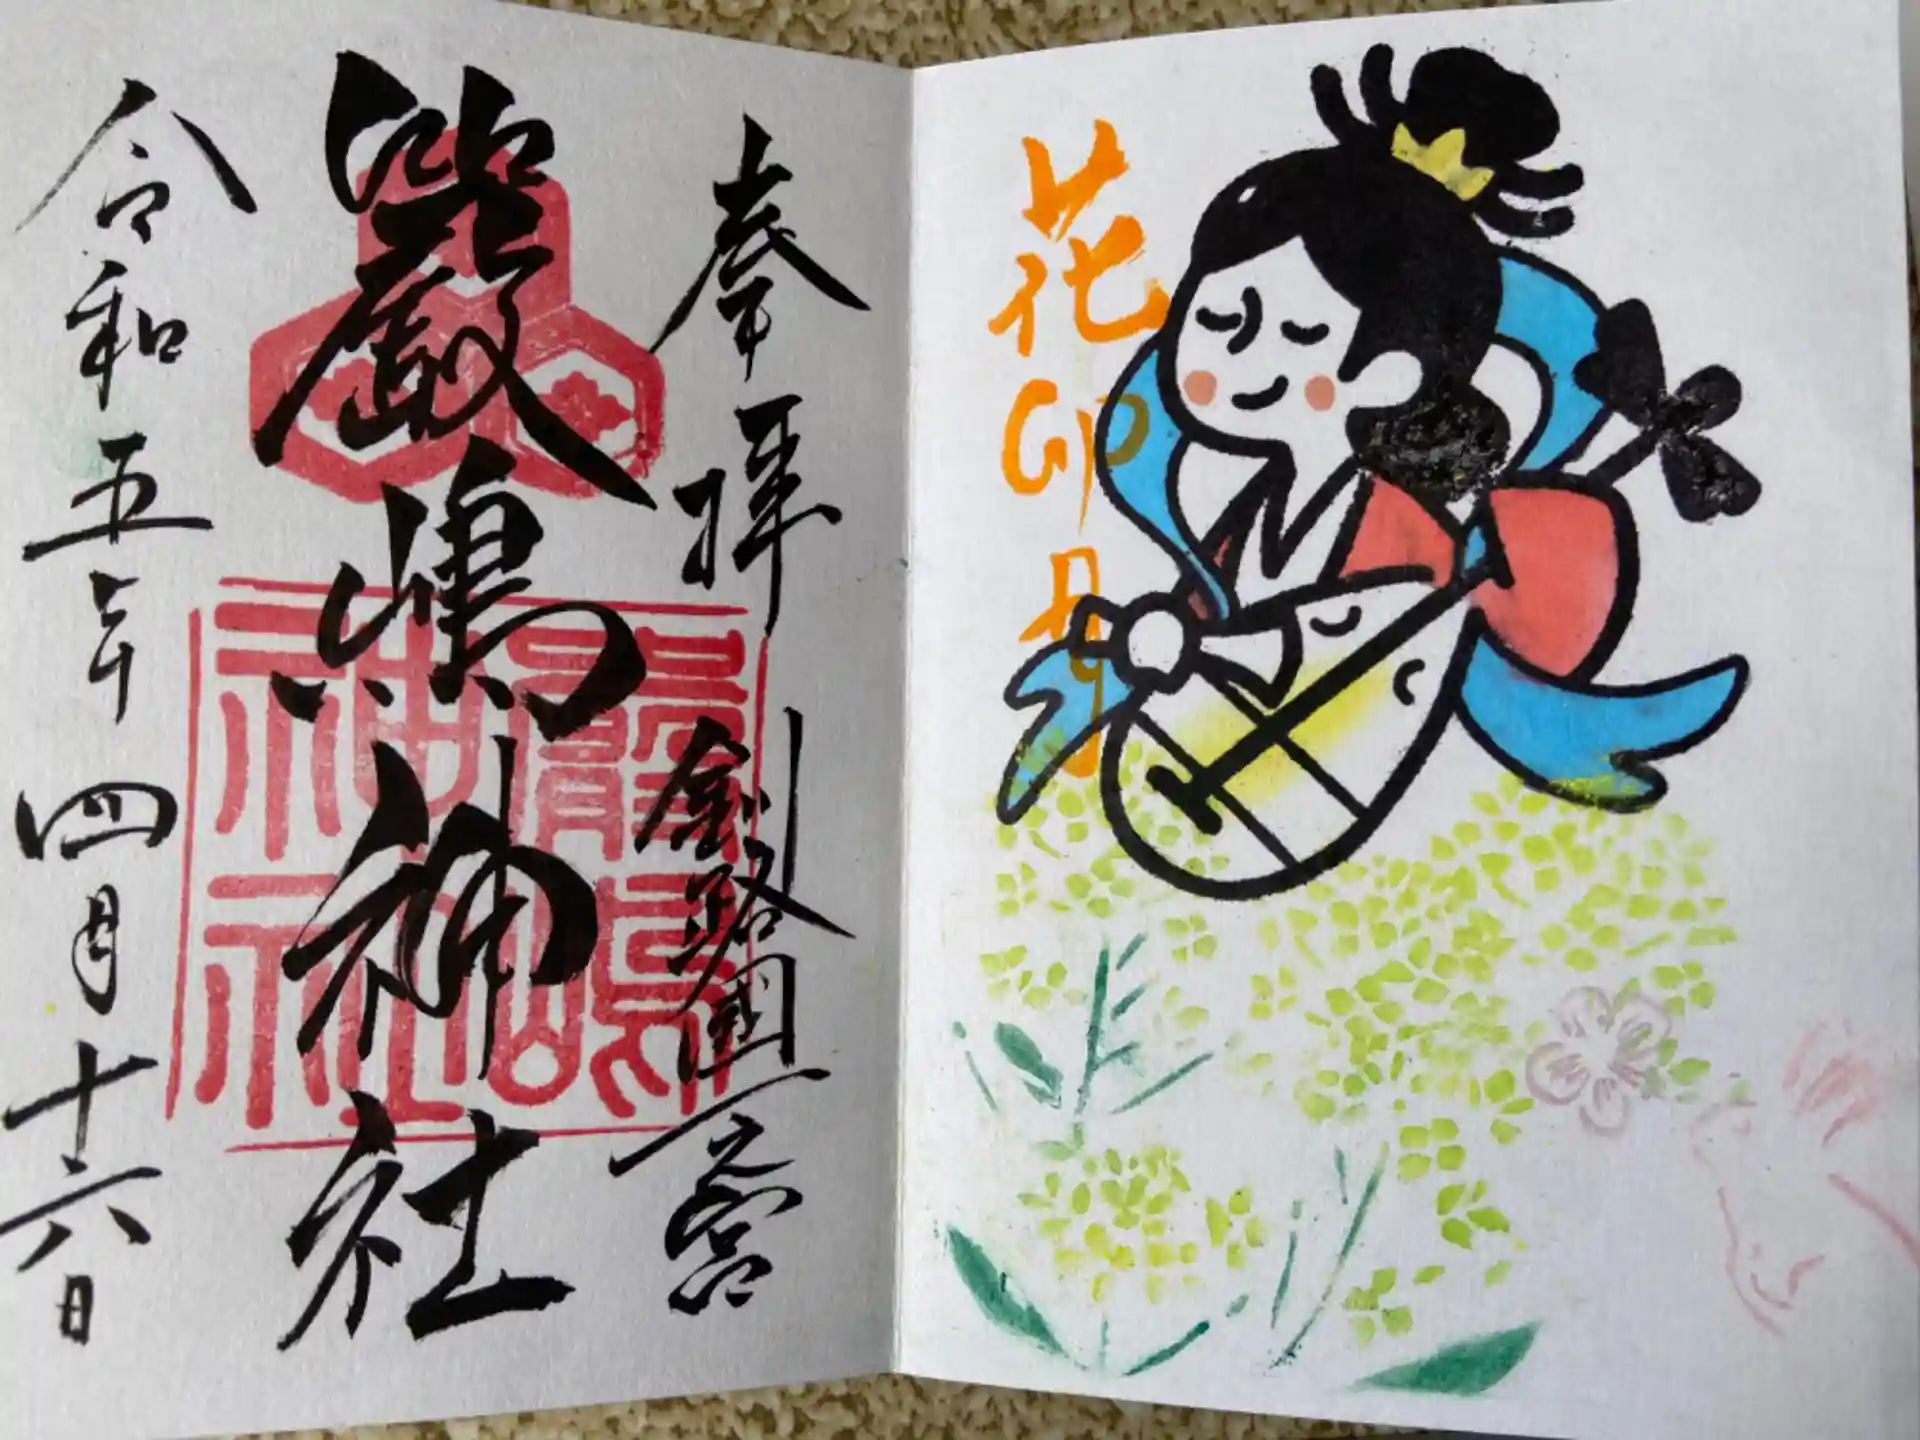 花卯月
奉拝
釧路國一之宮
嚴嶋神社
嚴嶋神社
令和五年四月十六日